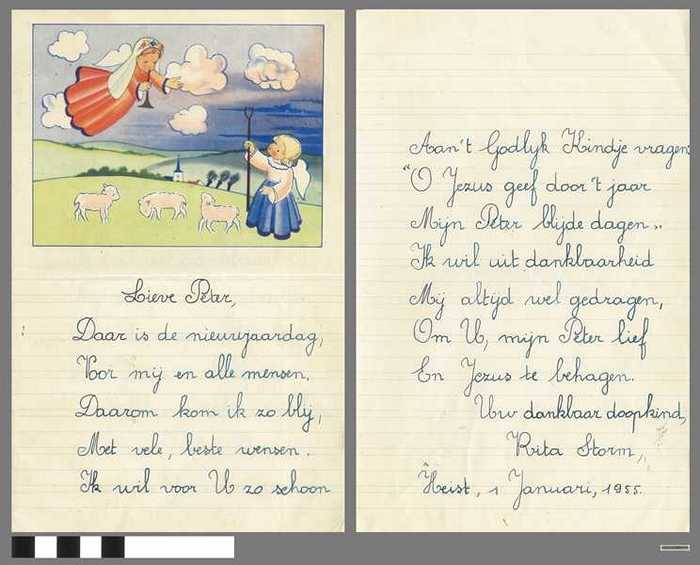 Lieve Peter,
Daar is de nieuwjaardag,
Voor mij en alle mensen.
Daarom kom ik zo blij,
Met vele, beste wensen.
Ik wil voor U zo schoon
Aan't Godlijk Kindje vragen:
"O Jezus geef door't jaar
Mijn Peter blijde dagen".
Ik wil uit dankbaarheid
Mij altijd wel gedragen,
Om U, mijn Peter lief
En Jezus te behagen.
Uw dankbaar doopkind,
Rita Storm,
Heist, 1 Januari, 1955.